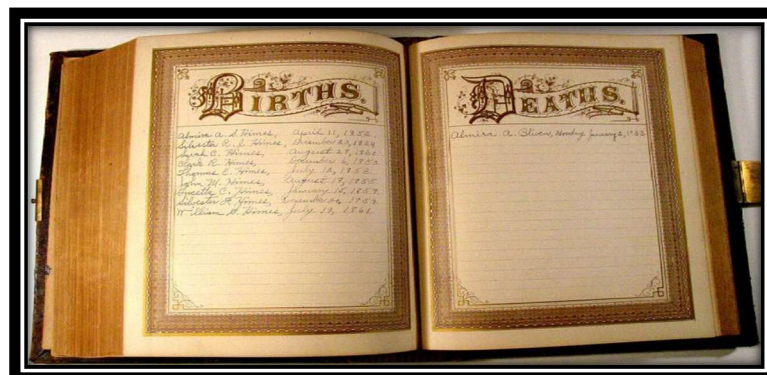 BIRTHS.
Almira A. S. Himes, April 11, 1852.
Sylvester R. J. Himes, December
Sarah C. Himes, August
Clark R. Himes, December 6, 1850.
Thomas E. Himes, July 12, 1853.
John M. Himes, August 19, 1855.
Lucetta C. Himes, January 15, 1857.
Silvester P. Himes, December 1857.
William G. Himes, July 19, 1861.
DEATHS.
Almira A. Bliven, Monday January